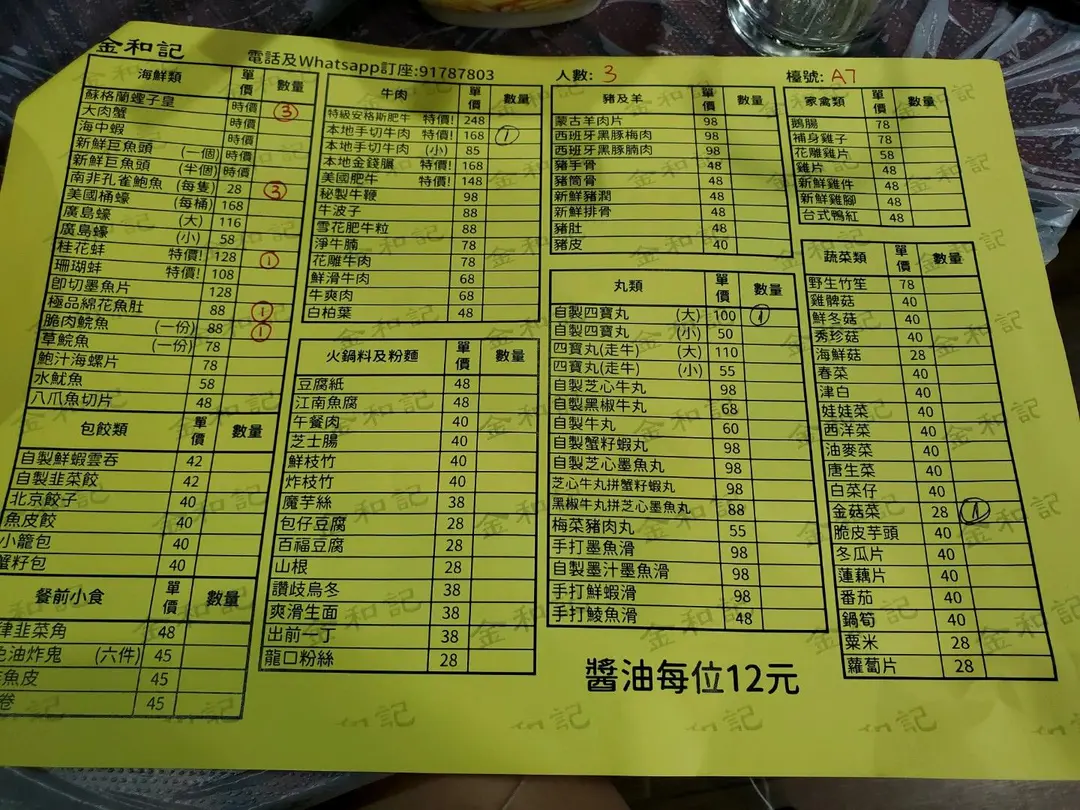 金和記
電話及Whatsapp訂座:91787803
人數: 3
檯號: A7
海鮮類 單價 數量
蘇格蘭蟶子皇 時價 ③
大肉蟹 時價
海中蝦 時價
新鮮巨魚頭 (一個) 時價
新鮮巨魚頭 (半個) 時價
南非孔雀鮑魚 (每隻) 28 ③
美國桶蠔 (每桶) 168
廣島蠔 (大) 116
廣島蠔 (小) 58
桂花蚌 特價! 128 ①
珊瑚蚌 特價! 108
即切墨魚片 128
極品綿花魚肚 88 ①
脆肉鯇魚 (一份) 88 ①
草鯇魚 (一份) 78
鮑汁海螺片 78
水魷魚 58
八爪魚切片 48
包餃類 單價 數量
自製鮮蝦雲吞 42
自製韭菜餃 42
北京餃子 40
魚皮餃 40
小籠包 40
蟹籽包 40
餐前小食 單價 數量
律韭菜角 48
油炸鬼 (六件) 45
魚皮 45
卷 45
牛肉 單價 數量
特級安格斯肥牛 特價! 248
本地手切牛肉 特價! 168 ①
本地手切牛肉 (小) 85
本地金錢𦟌 特價! 168
美國肥牛 特價! 148
秘製牛鞭 98
牛波子 88
雪花肥牛粒 88
淨牛腩 78
花雕牛肉 78
鮮滑牛肉 68
牛爽肉 68
白柏葉 48
火鍋料及粉麵 單價 數量
豆腐紙 48
江南魚腐 48
午餐肉 40
芝士腸 40
鮮枝竹 40
炸枝竹 40
魔芋絲 38
包仔豆腐 28
百福豆腐 28
山根 28
讚歧烏冬 38
爽滑生面 38
出前一丁 38
龍口粉絲 28
豬及羊 單價 數量
蒙古羊肉片 98
西班牙黑豚梅肉 98
西班牙黑豚腩肉 98
豬手骨 48
豬筒骨 48
新鮮豬潤 48
新鮮排骨 48
豬肚 48
豬皮 40
丸類 單價 數量
自製四寶丸 (大) 100 ①
自製四寶丸 (小) 50
四寶丸(走牛) (大) 110
四寶丸(走牛) (小) 55
自製芝心牛丸 98
自製黑椒牛丸 68
自製牛丸 60
自製蟹籽蝦丸 98
自製芝心墨魚丸 98
芝心牛丸拼蟹籽蝦丸 98
黑椒牛丸拼芝心墨魚丸 88
梅菜豬肉丸 55
手打墨魚滑 98
自製墨汁墨魚滑 98
手打鮮蝦滑 98
手打鯪魚滑 48
醬油每位12元
家禽類 單價 數量
鵝腸 78
補身雞子 78
花雕雞片 58
雞片 48
新鮮雞件 48
新鮮雞腳 48
台式鴨紅 48
蔬菜類 單價 數量
野生竹笙 78
雞髀菇 40
鮮冬菇 40
秀珍菇 40
海鮮菇 28
春菜 40
津白 40
娃娃菜 40
西洋菜 40
油麥菜 40
唐生菜 40
白菜仔 40
金菇菜 28 ①
脆皮芋頭 40
冬瓜片 40
蓮藕片 40
番茄 40
鍋筍 40
粟米 28
蘿蔔片 28